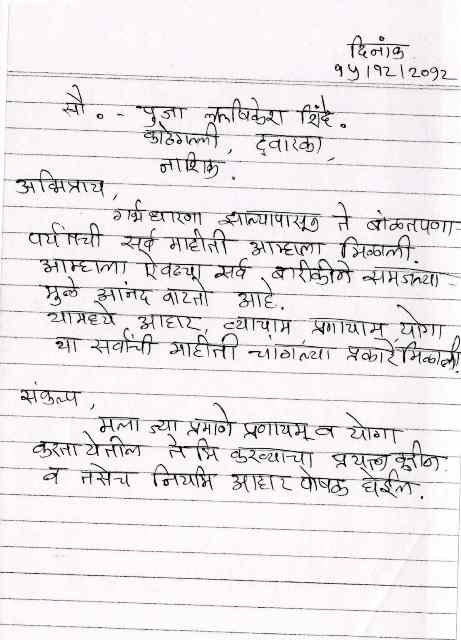 दिनांक
१५/१२/२०१२
सौ. - पुजा ऋषिकेश शिंदे.
काठेगल्ली, द्वारका,
नाशिक.
अभिप्राय,
गर्भधारणा झाल्यापासून ते बाळंतपणा-
पर्यंतची सर्व माहीती आम्हाला मिळाली.
आम्हाला ऐवढ्या सर्व बारीकीने समजल्या-
मुळे आनंद वाटतो आहे.
यामध्ये आहार, व्यायाम, प्रणायाम, योगा
या सर्वांची माहीती चांगल्या प्रकारे मिळाली.
संकल्प,
मला ज्या प्रमाणे प्रणायम व योगा
करता येतील ते मि करण्याचा प्रयत्न करीन.
व तसेच नियमि आहार पोषक घेईल.